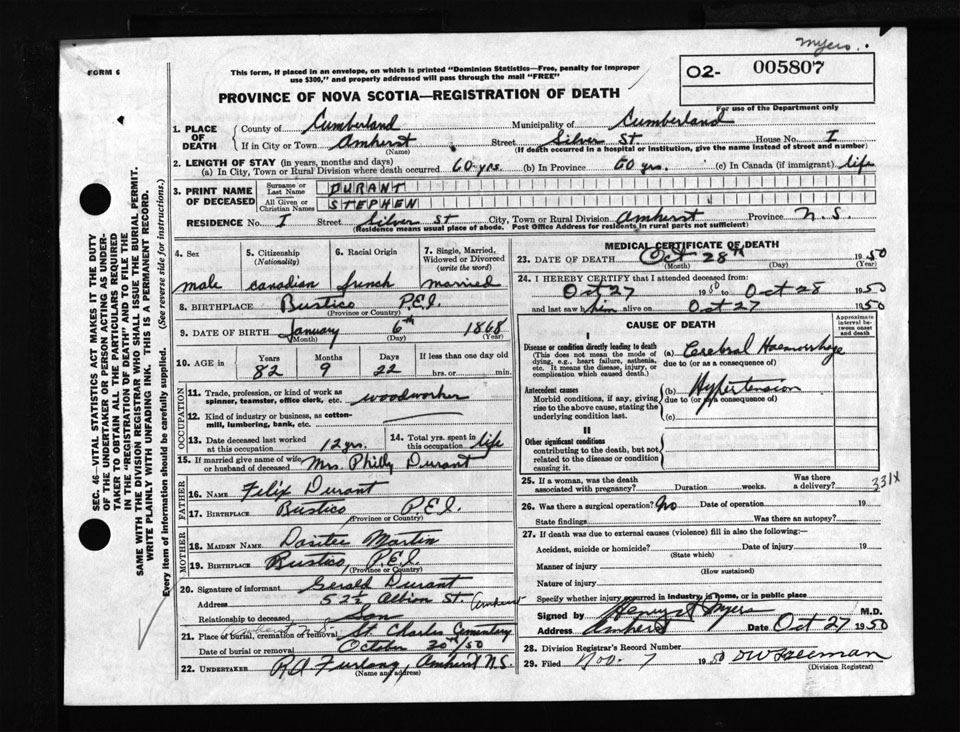 Myers.
FORM 6
This form, if placed in an envelope, on which is printed "Dominion Statistics—Free, penalty for improper
use $300," and properly addressed will pass through the mail "FREE"
02- 005807
For use of the Department only
PROVINCE OF NOVA SCOTIA—REGISTRATION OF DEATH
SEC. 46—VITAL STATISTICS ACT MAKES IT THE DUTY
OF THE UNDERTAKER OR PERSON ACTING AS UNDER-
TAKER TO OBTAIN ALL THE PARTICULARS REQUIRED
IN THE "REGISTRATION OF DEATH" AND TO FILE THE
SAME WITH THE DIVISION REGISTRAR WHO SHALL ISSUE THE BURIAL PERMIT.
WRITE PLAINLY WITH UNFADING INK. THIS IS A PERMANENT RECORD.
Every item of information should be carefully supplied. (See reverse side for instructions.)
1. PLACE OF DEATH County of Cumberland Municipality of Cumberland
If in City or Town Amherst Street Silver St. House No. 1
(Name) (If death occurred in a hospital or institution, give the name instead of street and number)
2. LENGTH OF STAY (in years, months and days)
(a) In City, Town or Rural Division where death occurred 60 yrs. (b) In Province 60 yrs. (c) In Canada (if immigrant) life
3. PRINT NAME OF DECEASED Surname or Last Name DURANT
All Given or Christian Names STEPHEN
RESIDENCE No. 1 Street Silver St City, Town or Rural Division Amherst Province N.S.
(Residence means usual place of abode. Post Office Address for residents in rural parts not sufficient)
4. Sex 5. Citizenship (Nationality) 6. Racial Origin 7. Single, Married, Widowed or Divorced (write the word)
male canadian french married
8. BIRTHPLACE Rustico P.E.I.
(Province or Country)
9. DATE OF BIRTH January 6th 1868
(Month) (Day) (Year)
10. AGE in Years Months Days If less than one day old
82 9 22 hrs. or min.
OCCUPATION
11. Trade, profession, or kind of work as spinner, teamster, office clerk, etc. woodworker
12. Kind of industry or business, as cotton-mill, lumbering, bank, etc.
13. Date deceased last worked at this occupation 12 yrs. 14. Total yrs. spent in this occupation life
15. If married give name of wife or husband of deceased Mrs. Philly Durant
FATHER
16. NAME Felix Durant
17. BIRTHPLACE Rustico P.E.I.
(Province or Country)
MOTHER
18. MAIDEN NAME Martin
19. BIRTHPLACE Rustico, P.E.I.
(Province or Country)
20. Signature of informant Gerald Durant
Address 52½ Albion St. Amherst
Relationship to deceased Son
Amherst N.S.
21. Place of burial, cremation or removal St. Charles Cementery
Date of burial or removal October 30th/50
22. UNDERTAKER R.A. Furlong, Amherst N.S.
(Name and address)
MEDICAL CERTIFICATE OF DEATH
23. DATE OF DEATH Oct 28th 1950
(Month) (Day) (Year)
24. I HEREBY CERTIFY that I attended deceased from:
Oct 27 1950 to Oct 28 1950
and last saw him alive on Oct 27 1950
CAUSE OF DEATH
Approximate interval between onset and death
Disease or condition directly leading to death
(This does not mean the mode of dying, e.g., heart failure, asthenia, etc. It means the disease, injury, or complication which caused death.)
(a) Cerebral Haemorrhage
due to (or as a consequence of)
Antecedent causes
Morbid conditions, if any, giving rise to the above cause, stating the underlying condition last.
(b) Hypertension
due to (or as a consequence of)
(c)
II
Other significant conditions
contributing to the death, but not related to the disease or condition causing it.
25. If a woman, was the death associated with pregnancy? Duration weeks. Was there a delivery?
331X
26. Was there a surgical operation? No Date of operation 19
State findings Was there an autopsy?
27. If death was due to external causes (violence) fill in also the following:—
Accident, suicide or homicide? Date of injury 19
(State which)
Manner of injury
(How sustained)
Nature of injury
Specify whether injury occurred in industry, in home, or in public place
Signed by Myers M.D.
Address Amherst Date Oct 27 1950
28. Division Registrar's Record Number
29. Filed Nov. 7 1950
(Division Registrar)